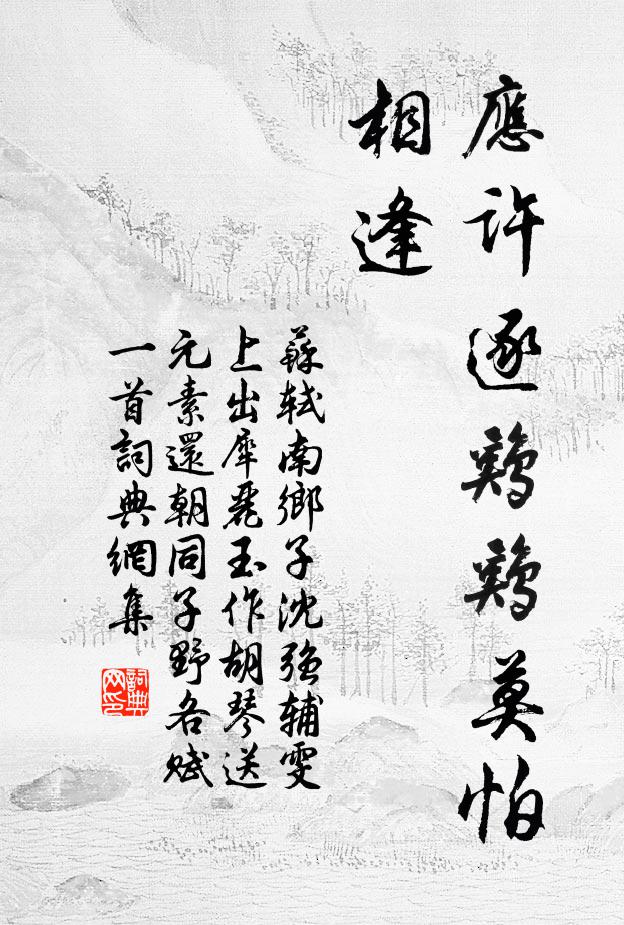 應許逐鷄鷄莫怕
相逢
蘇軾南鄉子沈強輔雯
上出犀麗玉作胡琴送
元素還朝同子野各賦
一首詞典網集
詞典
网印